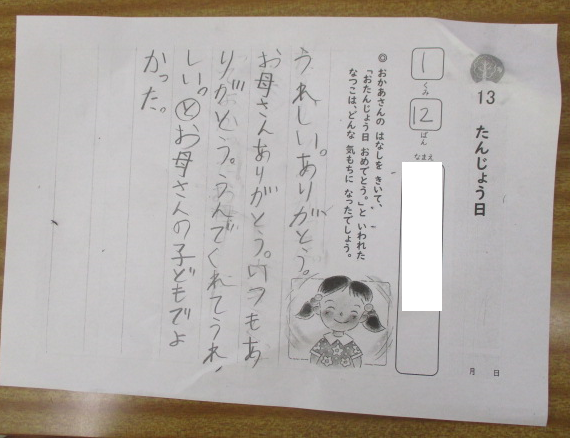 13 たんじょう日
月 日
1 くみ
12 ばん
なまえ
◎ おかあさんの はなしを きいて、
「おたんじょう日 おめでとう。」と いわれた
なつこは、どんな 気もちに なったでしょう。
うれしい。ありがとう。
お母さんありがとう。いつもあ
りがとう。うんでくれてうれ
しい。とお母さんの子どもでよ
かった。